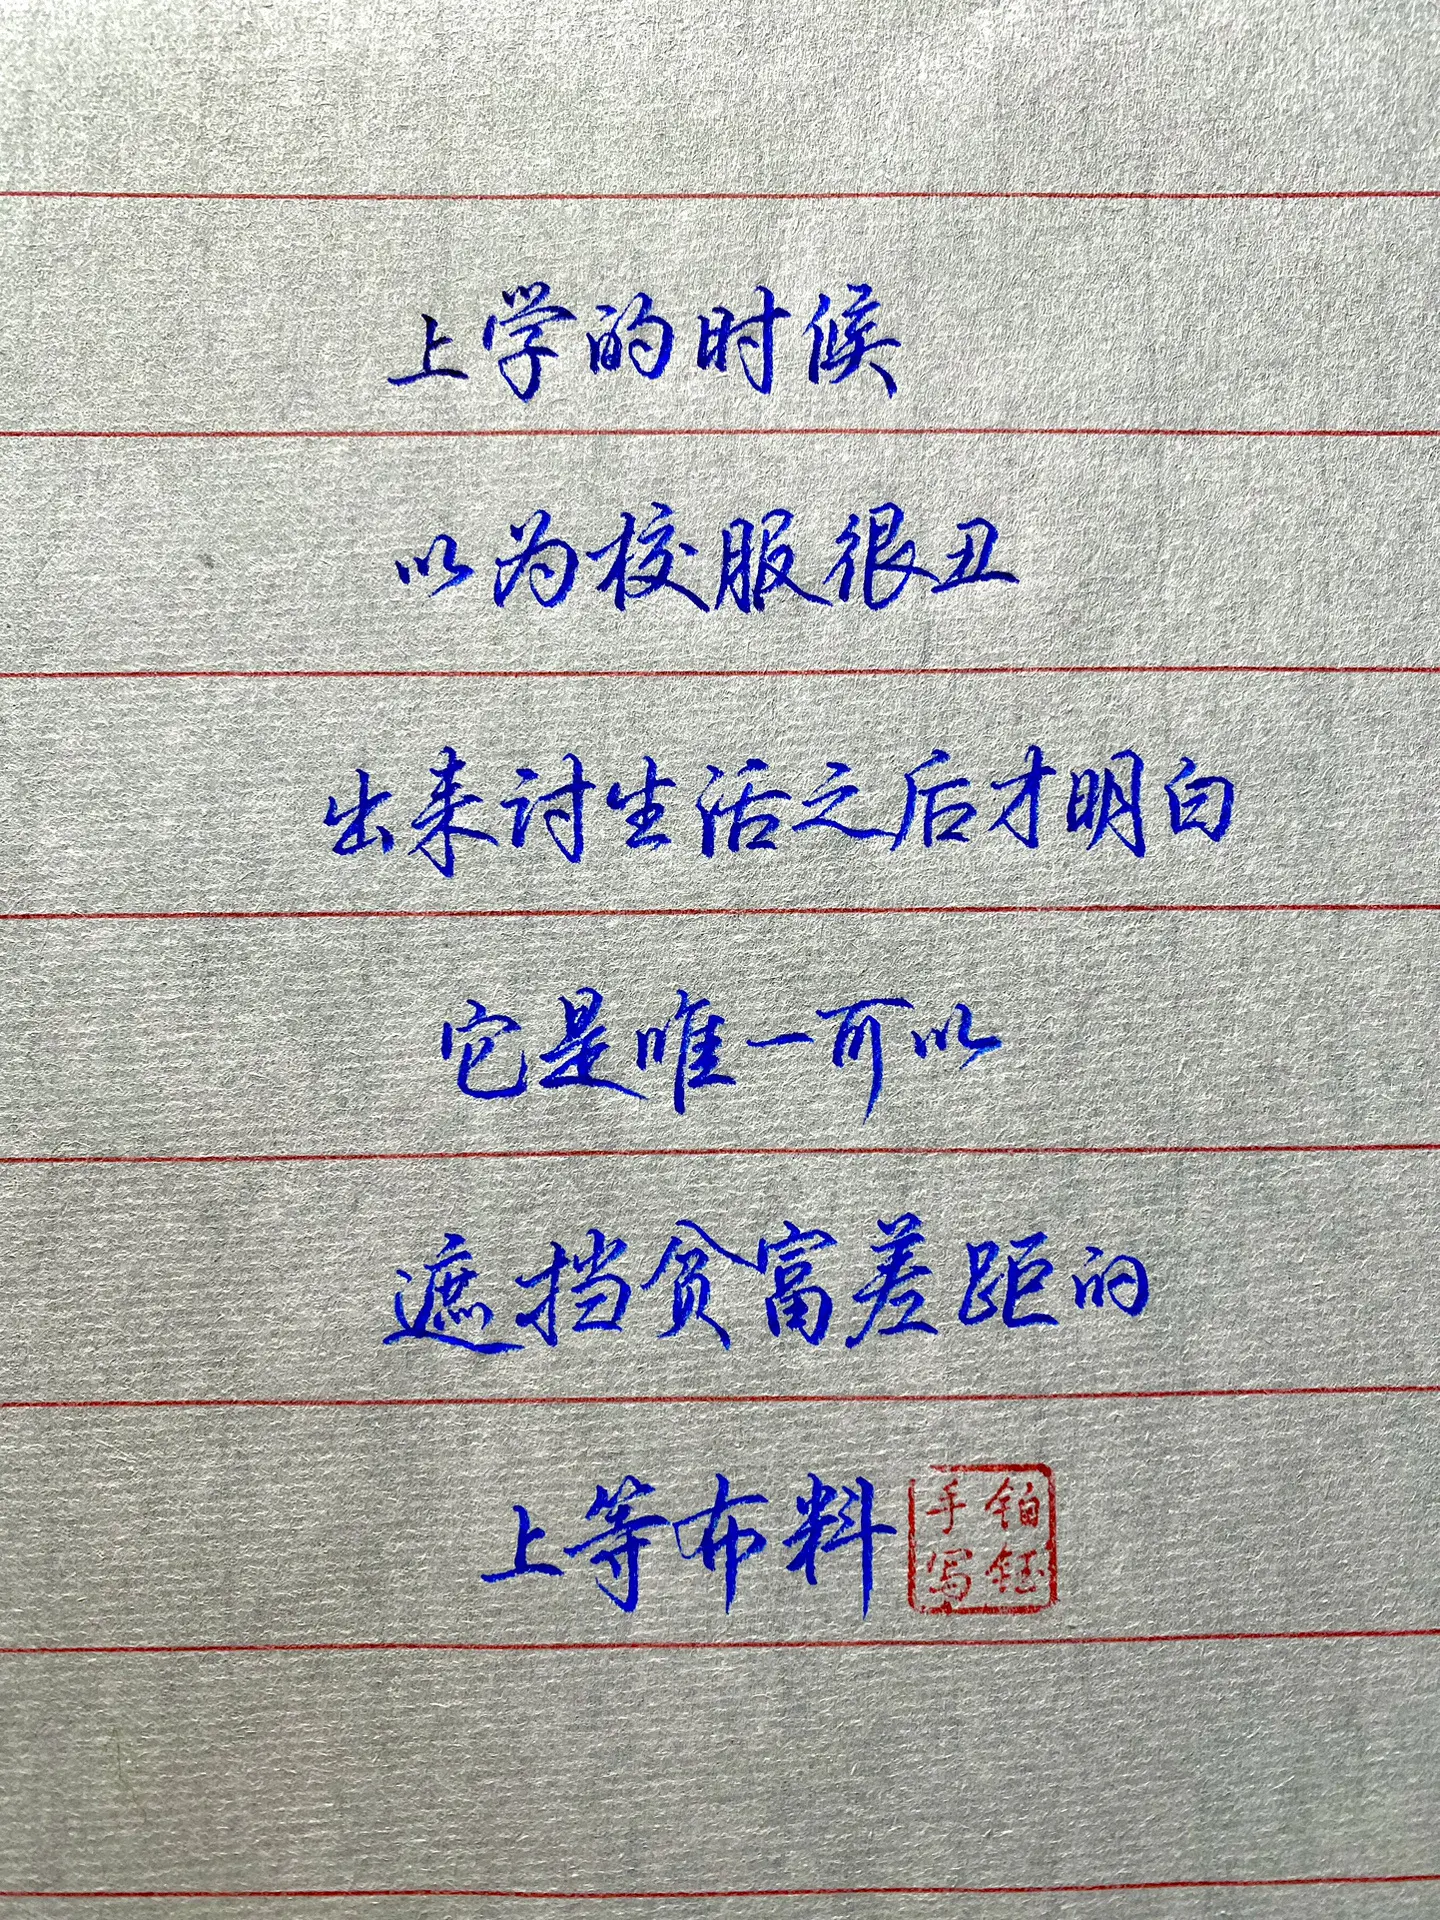 上学的时候
以为校服很丑
出来讨生活之后才明白
它是唯一可以
遮挡贫富差距的
上等布料
铂钰
手写